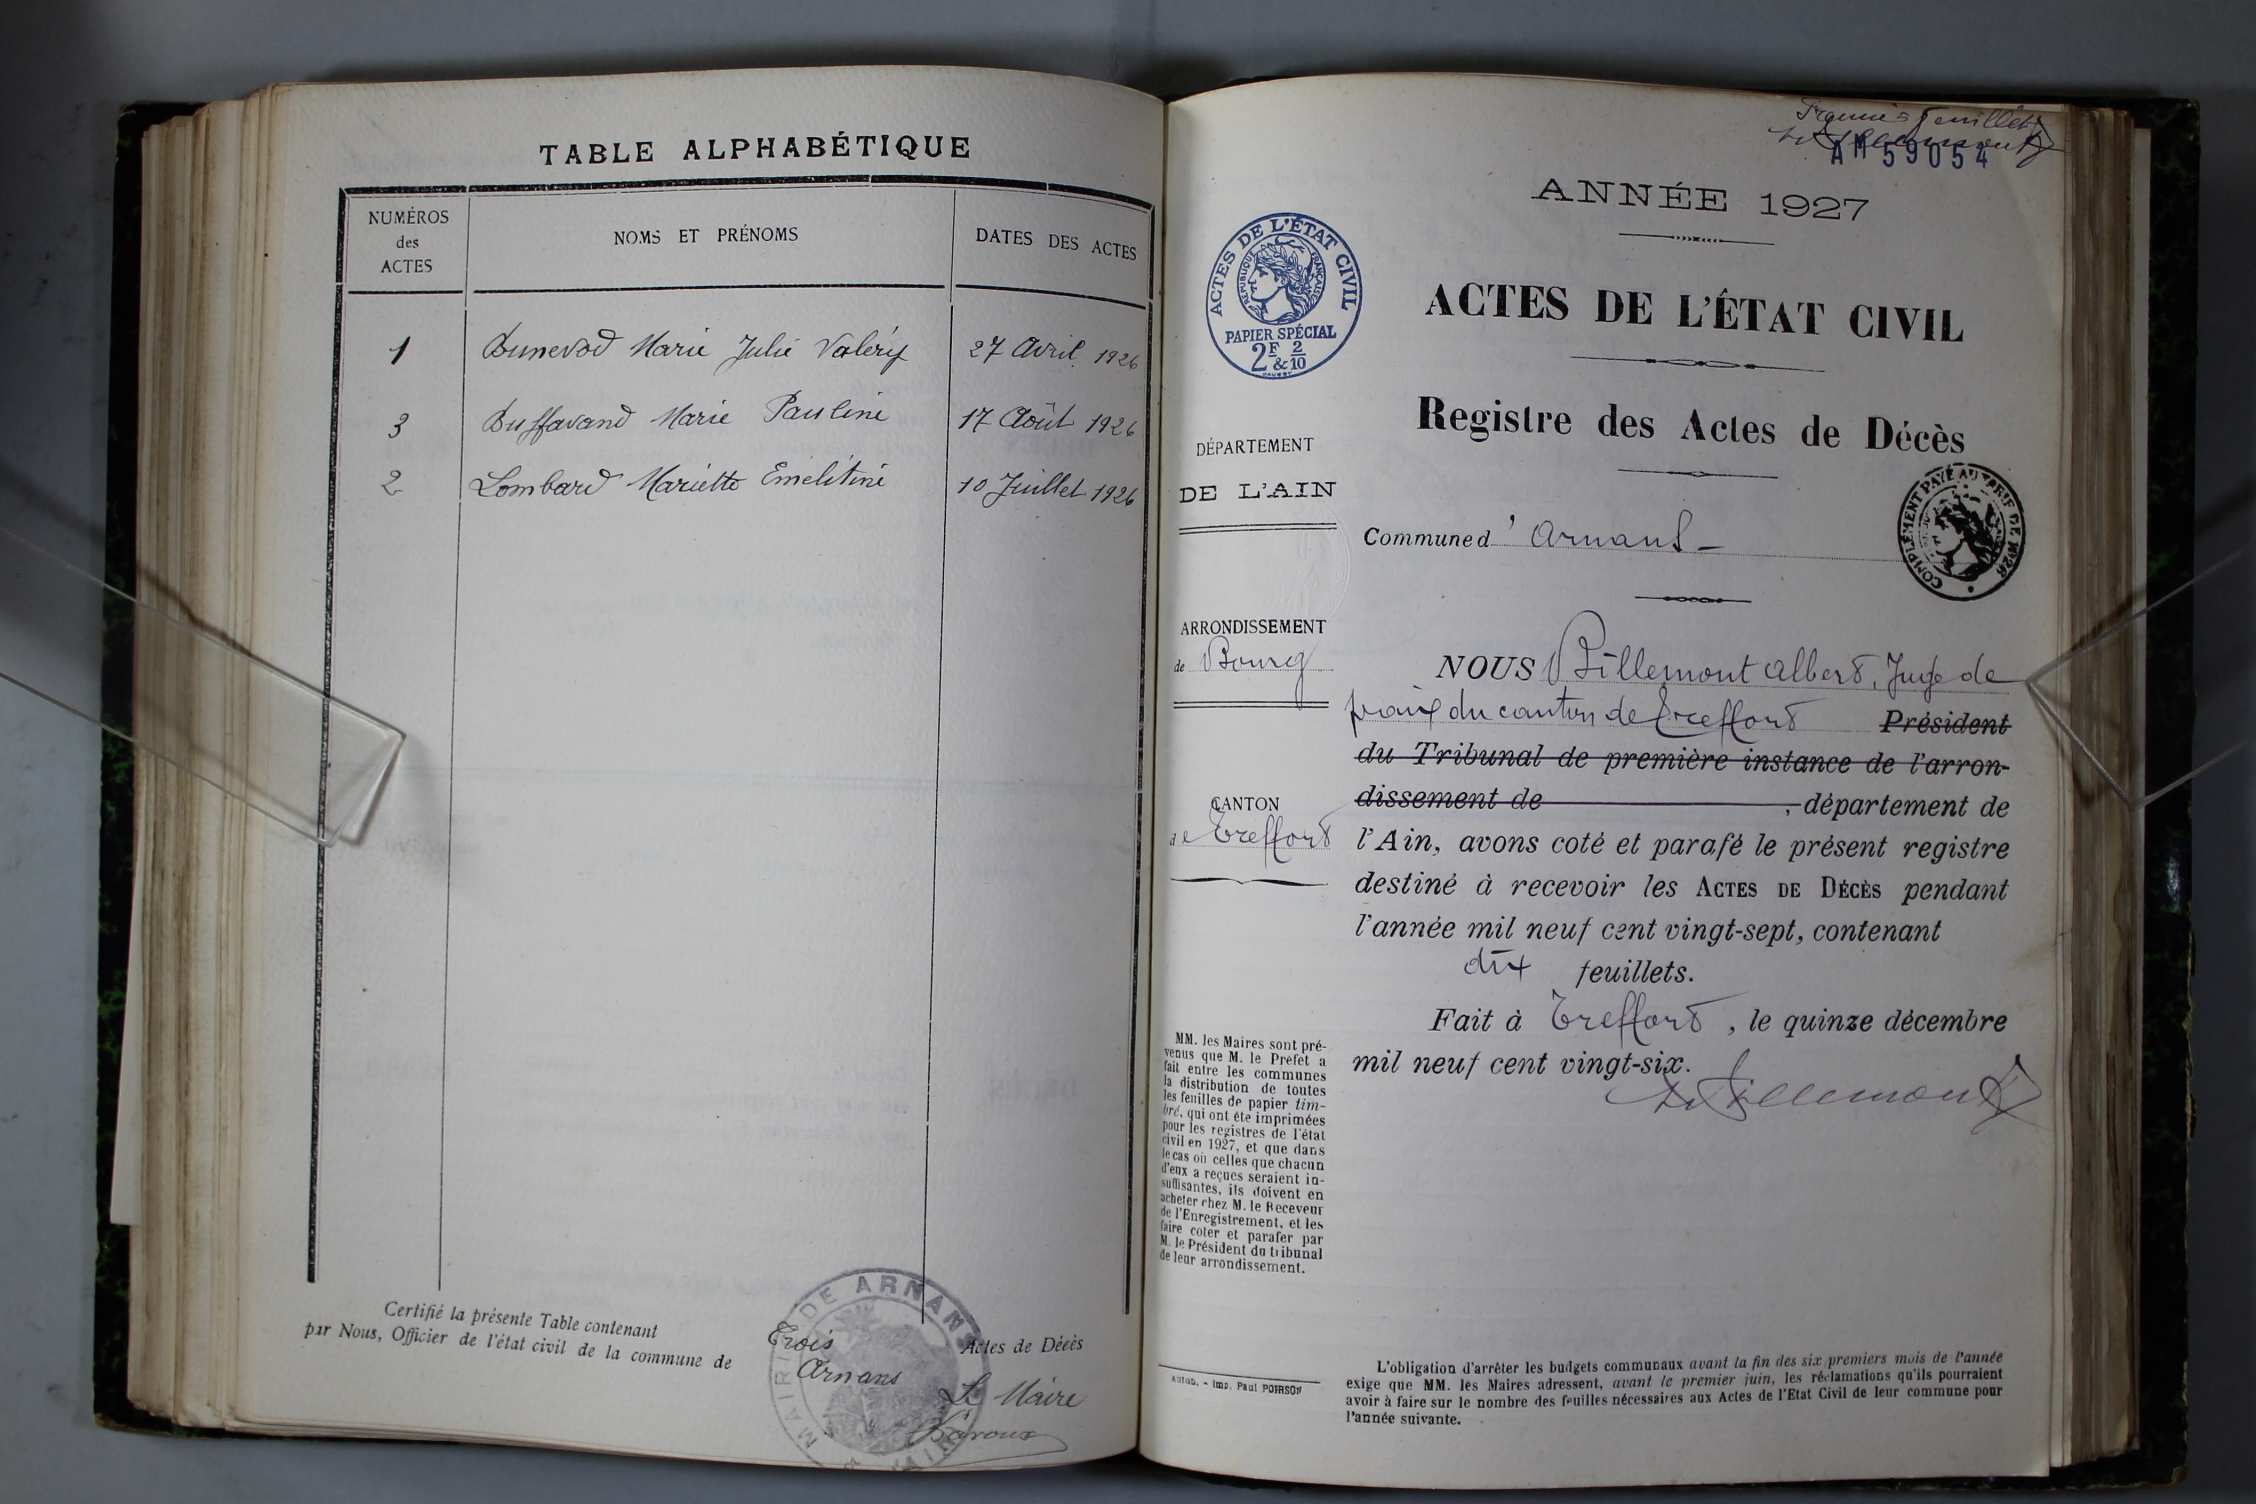 TABLE ALPHABÉTIQUE
NUMÉROS des ACTES
NOMS ET PRÉNOMS
DATES DES ACTES
1 Bunevod Marie Julie Valéry 27 Avril 1926
3 Buffavand Marie Pauline 17 Août 1926
2 Lombard Mariette 10 Juillet 1926
Certifié la présente Table contenant Trois Actes de Décès
par Nous, Officier de l'état civil de la commune de Arnans
Le Maire
MAIRIE DE ARNANS
Premier feuillet
AM 59054
ANNÉE 1927
ACTES DE L'ÉTAT CIVIL
RÉPUBLIQUE FRANÇAISE
PAPIER SPÉCIAL
2F & 2/10
ACTES DE L'ÉTAT CIVIL
Registre des Actes de Décès
DÉPARTEMENT
DE L'AIN
Commune d'Arnans
COMPLÉMENT PAYÉ AU TARIF DE 1926
ARRONDISSEMENT
de Bourg
CANTON
de Treffort
NOUS Billemont Albert, Juge de
paix du canton de Treffort Président
du Tribunal de première instance de l'arron-
dissement de , département de
l'Ain, avons coté et parafé le présent registre
destiné à recevoir les ACTES DE DÉCÈS pendant
l'année mil neuf cent vingt-sept, contenant
dix feuillets.
Fait à Treffort, le quinze décembre
mil neuf cent vingt-six.
Billemont
MM. les Maires sont pré-
venus que M. le Préfet a
fait entre les communes
la distribution de toutes
les feuilles de papier tim-
bré, qui ont été imprimées
pour les registres de l'état
civil en 1927, et que dans
le cas où celles que chacun
d'eux a reçues seraient in-
suffisantes, ils doivent en
acheter chez M. le Receveur
de l'Enregistrement, et les
faire coter et parafer par
M. le Président du tribunal
de leur arrondissement.
Imp. Paul POIRSON
L'obligation d'arrêter les budgets communaux avant la fin des six premiers mois de l'année
exige que MM. les Maires adressent, avant le premier juin, les réclamations qu'ils pourraient
avoir à faire sur le nombre des feuilles nécessaires aux Actes de l'Etat Civil de leur commune pour
l'année suivante.